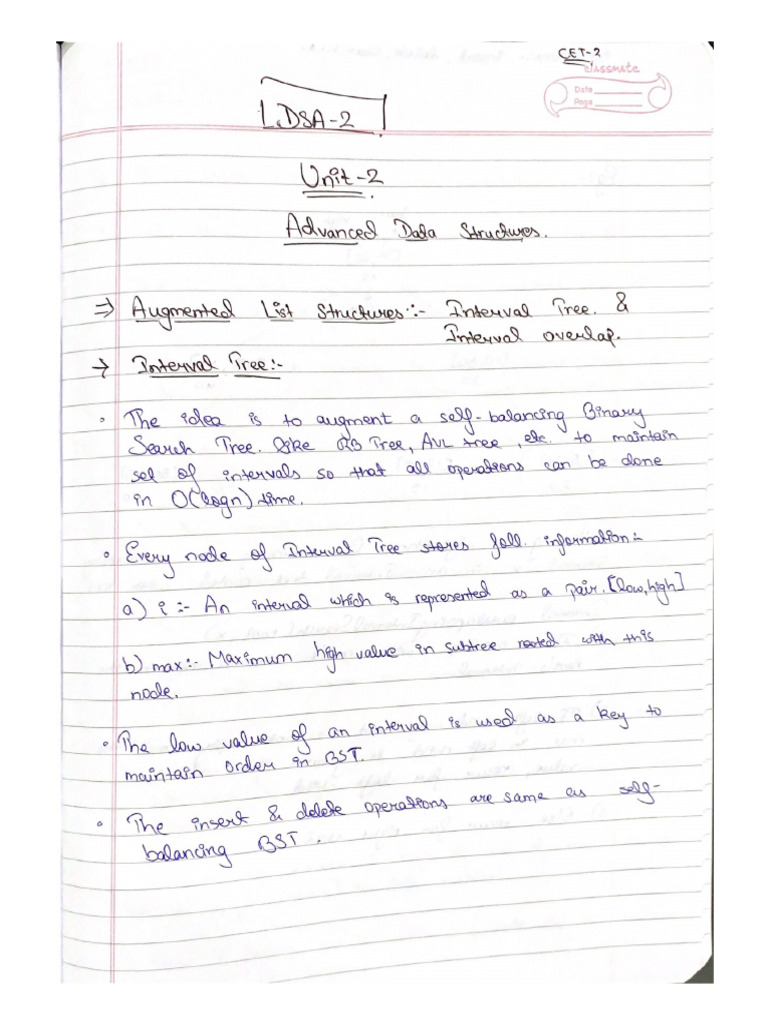 CET-2
classmate
Date
Page
LDSA-2
Unit-2
Advanced Data Structures.
⇒ Augmented List Structures:- Interval Tree. &
Interval overlap.
→ Interval Tree:-
• The idea is to augment a self-balancing Binary
Search Tree. Like RB Tree, AVL tree, etc. to maintain
set of intervals so that all operations can be done
in O(logn) time.
• Every node of Interval Tree stores foll. information:-
a) i :- An interval which is represented as a pair. [low,high]
b) max:- Maximum high value in subtree rooted with this
node.
• The low value of an interval is used as a key to
maintain order in BST.
• The insert & delete operations are same as self-
balancing BST.